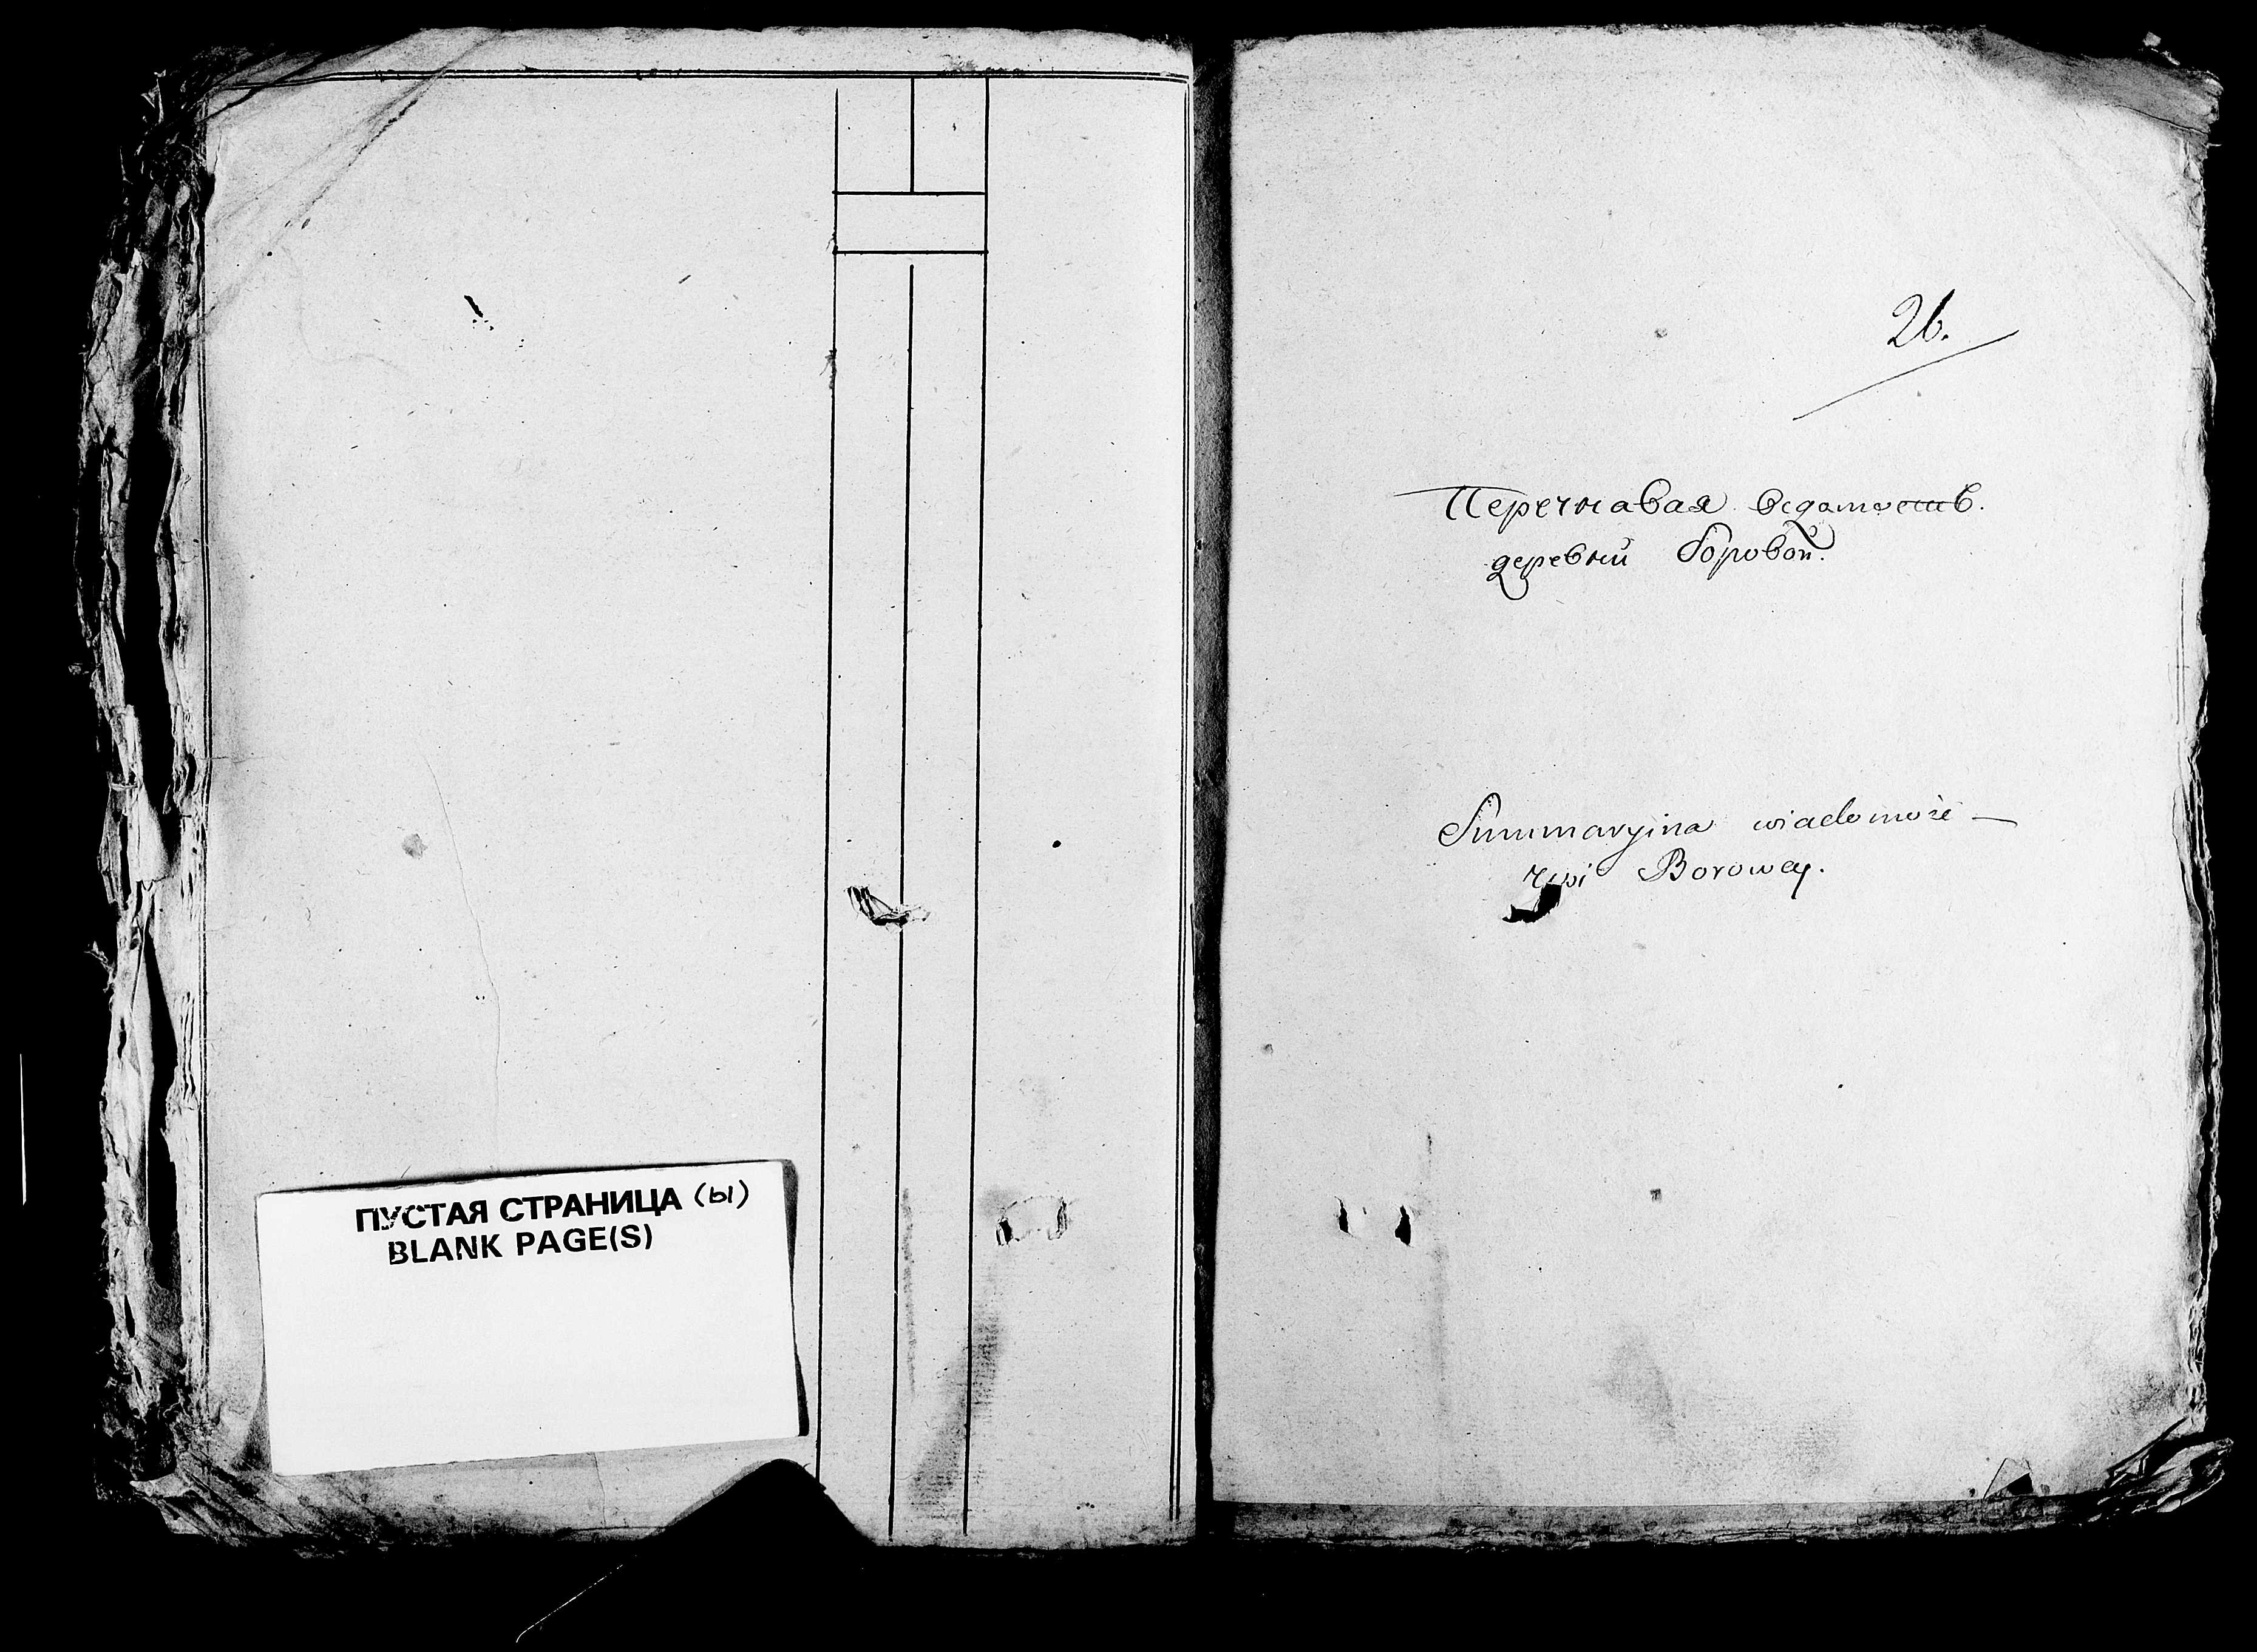 ПУСТАЯ СТРАНИЦА (ы)
BLANK PAGE(S)
26.
Перечнавая ведамость
деревни Боровой.
Summaryina wiadomość —
wsi Borowey.